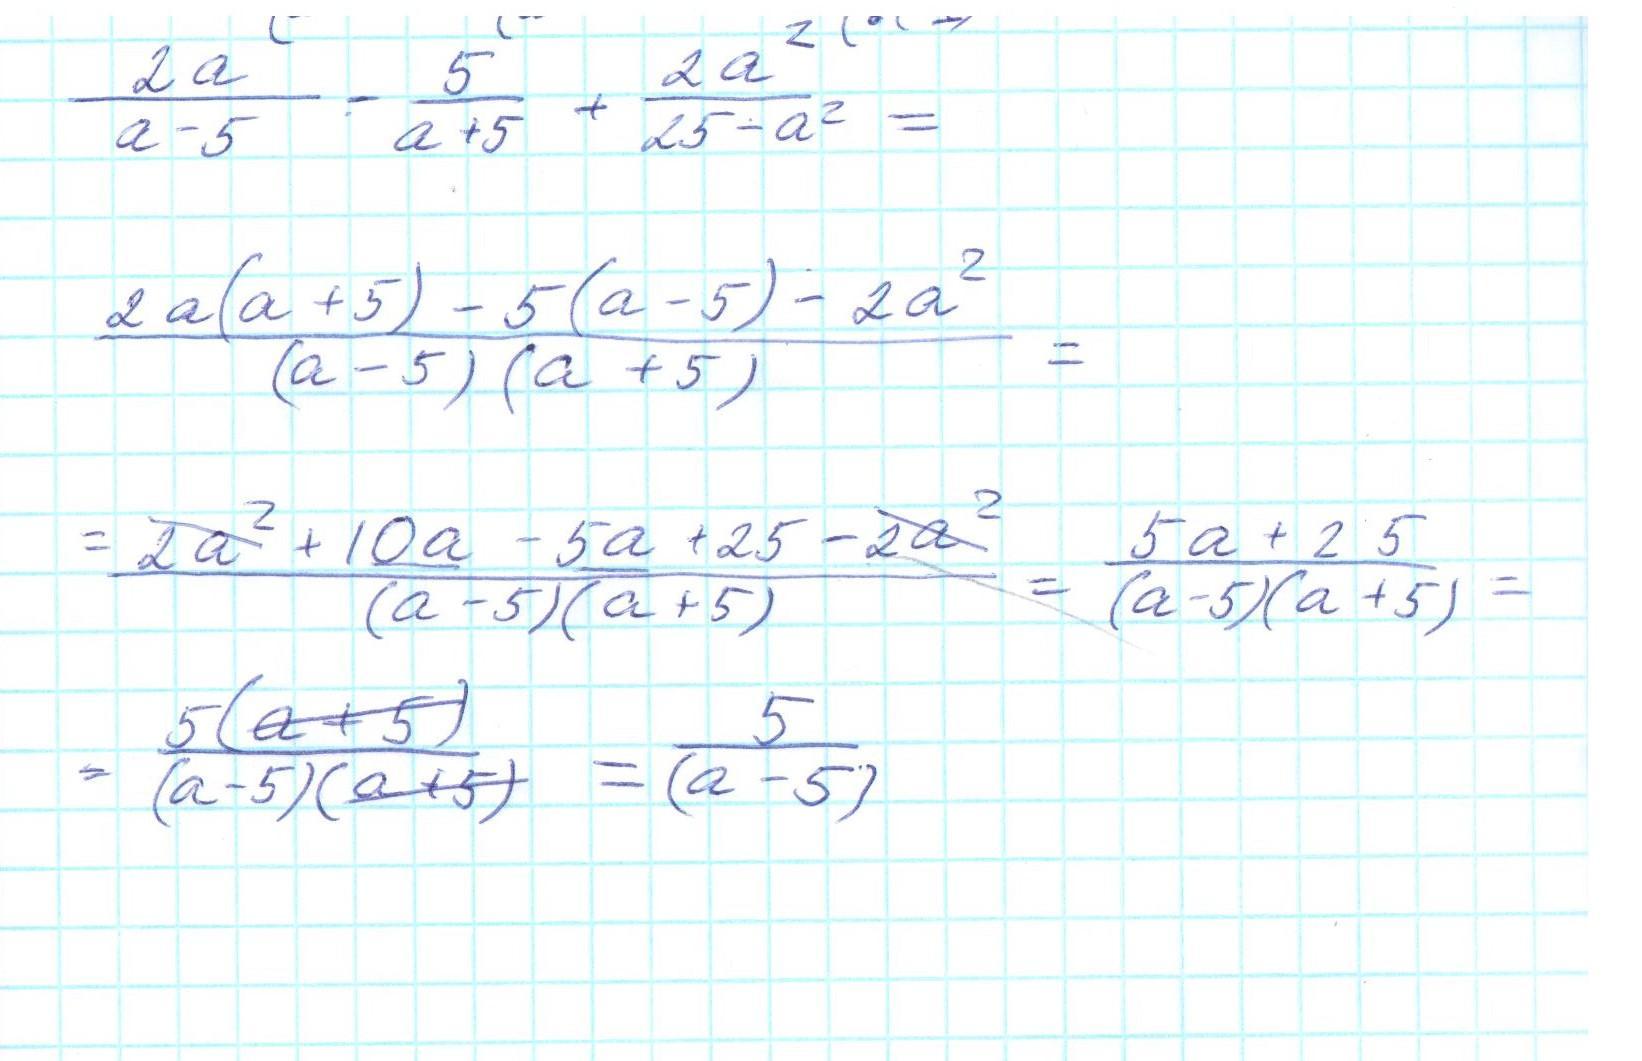 2a/(a-5) - 5/(a+5) + 2a²/(25-a²) =
(2a(a+5) - 5(a-5) - 2a²)/((a-5)(a+5)) =
= (2a² + 10a - 5a + 25 - 2a²)/((a-5)(a+5)) = (5a+25)/((a-5)(a+5)) =
= 5(a+5)/((a-5)(a+5)) = 5/(a-5)